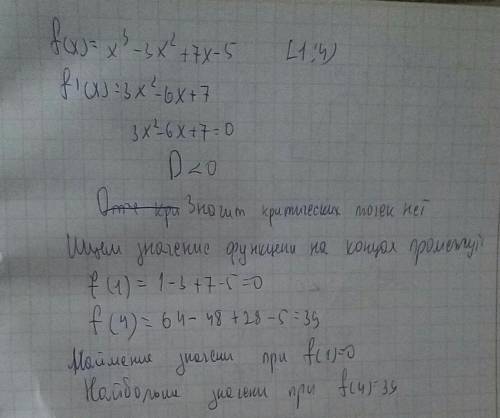 f(x)= x³ -3x² +7x-5 [1;4)
f'(x)=3x²-6x+7
3x²-6x+7=0
D<0
Значит критических точек нет
Ищем значение функции на концах промежут
f(1)= 1-3+7-5=0
f(4)= 64-48+28-5=39
Найменше значени при f(1)=0
Найбольше значени при f(4)=39